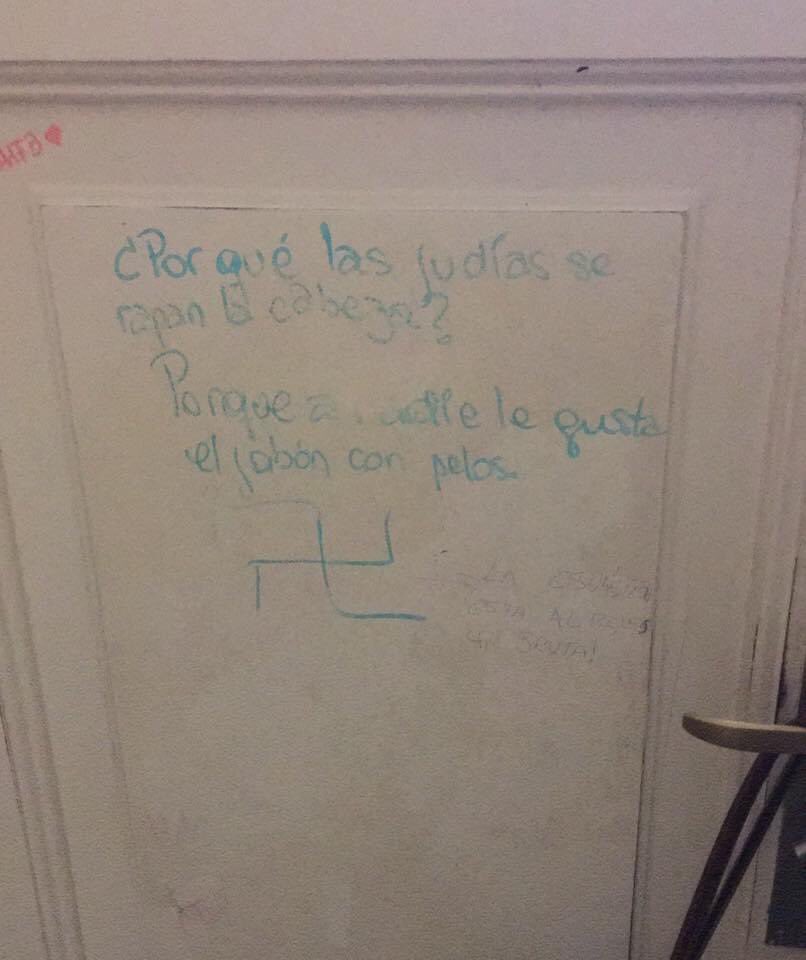 ¿Por qué las judías se
rapan la cabeza?
Porque a nadie le gusta
el jabón con pelos.
LA ESVÁSTICA
ESTÁ AL REVÉS
BRUTA!